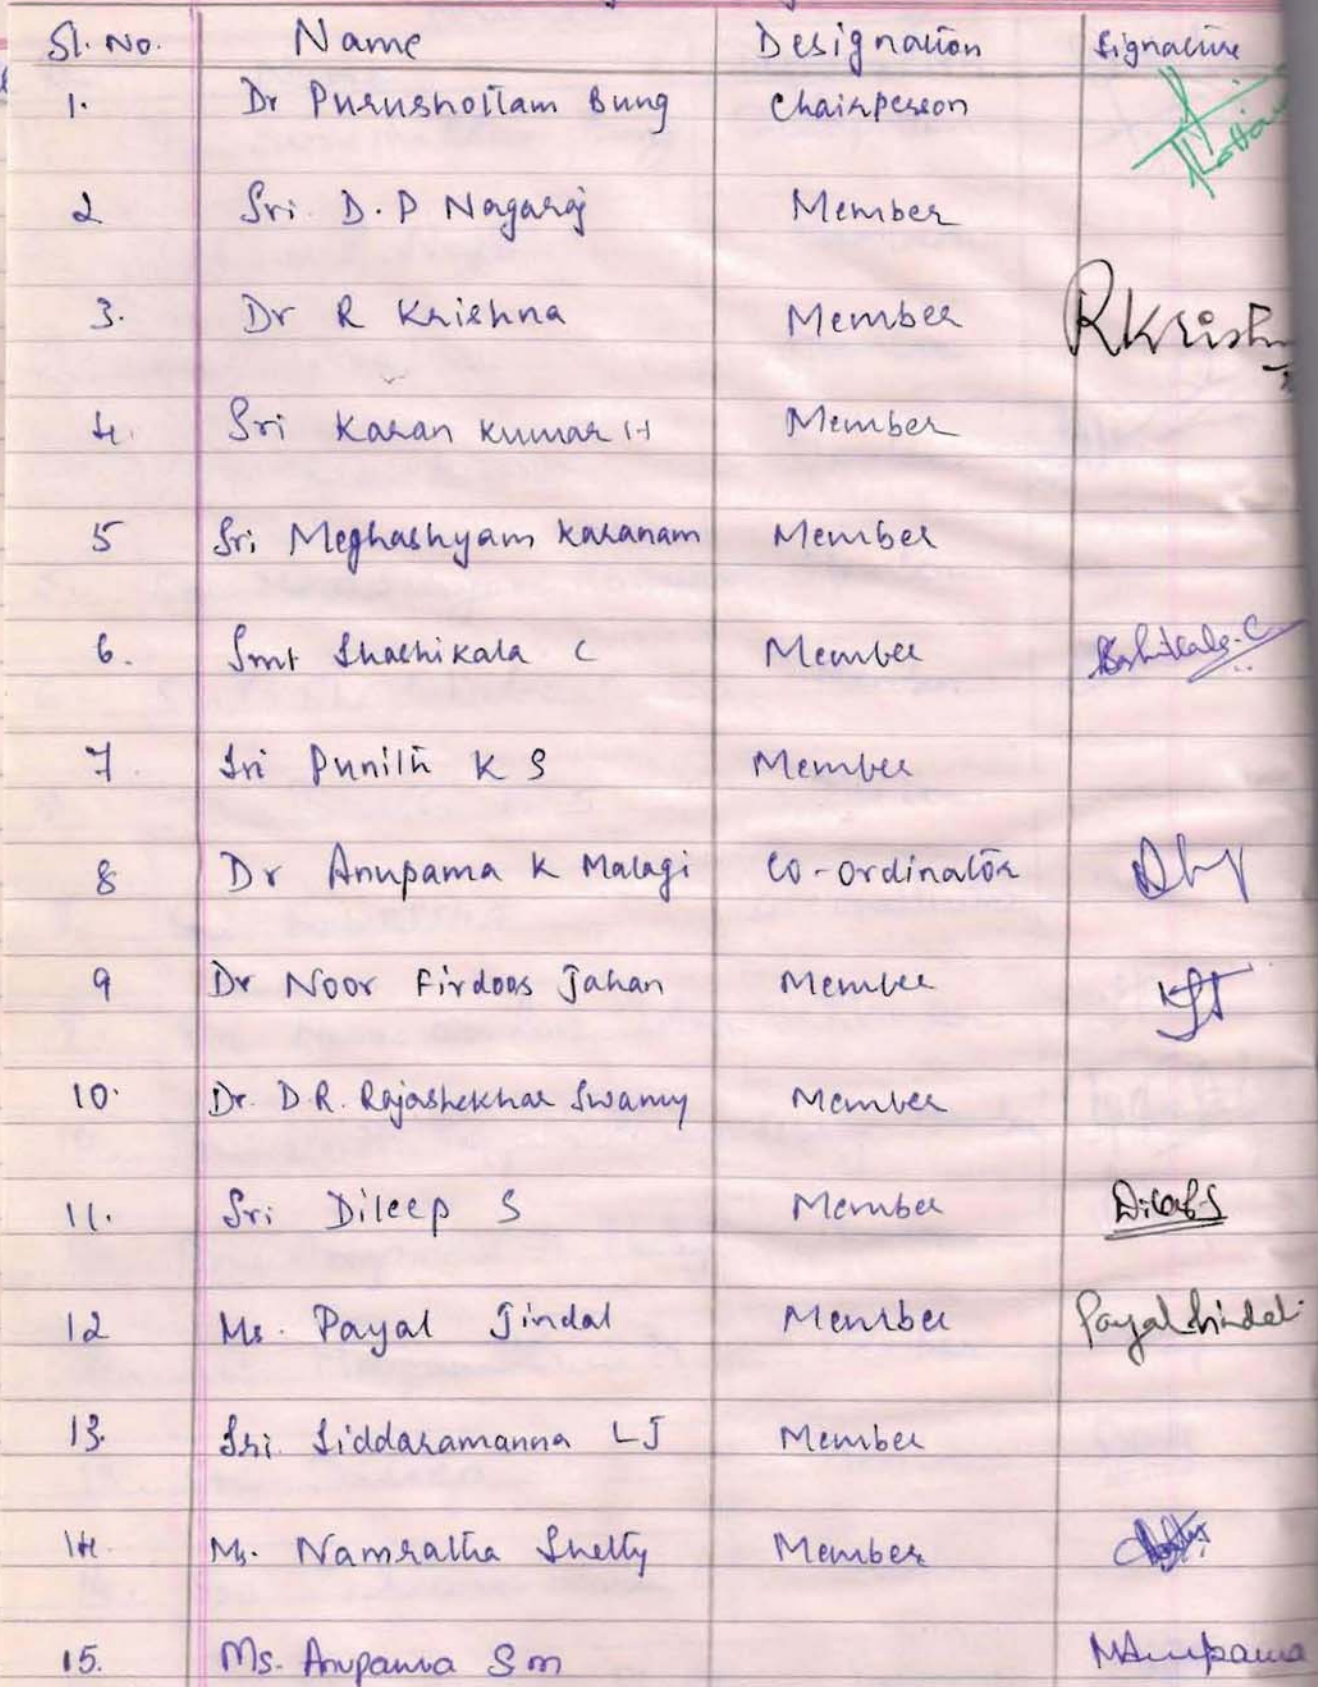 Sl. No. Name Designation Signature
1. Dr Purushottam Bung Chairperson
2 Sri. D. P Nagaraj Member
3. Dr R Krishna Member RKrish
4. Sri Karan Kumar H Member
5 Sri Meghashyam Karanam Member
6. Smt Shashikala C Member
7. Sri Punith K S Member
8 Dr Anupama K Malagi Co-ordinator
9 Dr Noor Firdoos Jahan Member
10. Dr. D.R. Rajashekhar Swamy Member
11. Sri Dileep S Member
12 Ms. Payal Jindal Member Payal Jindal
13. Sri. Siddaramanna L J Member
14. Ms. Namratha Shetty Member
15. Ms. Anupama S m